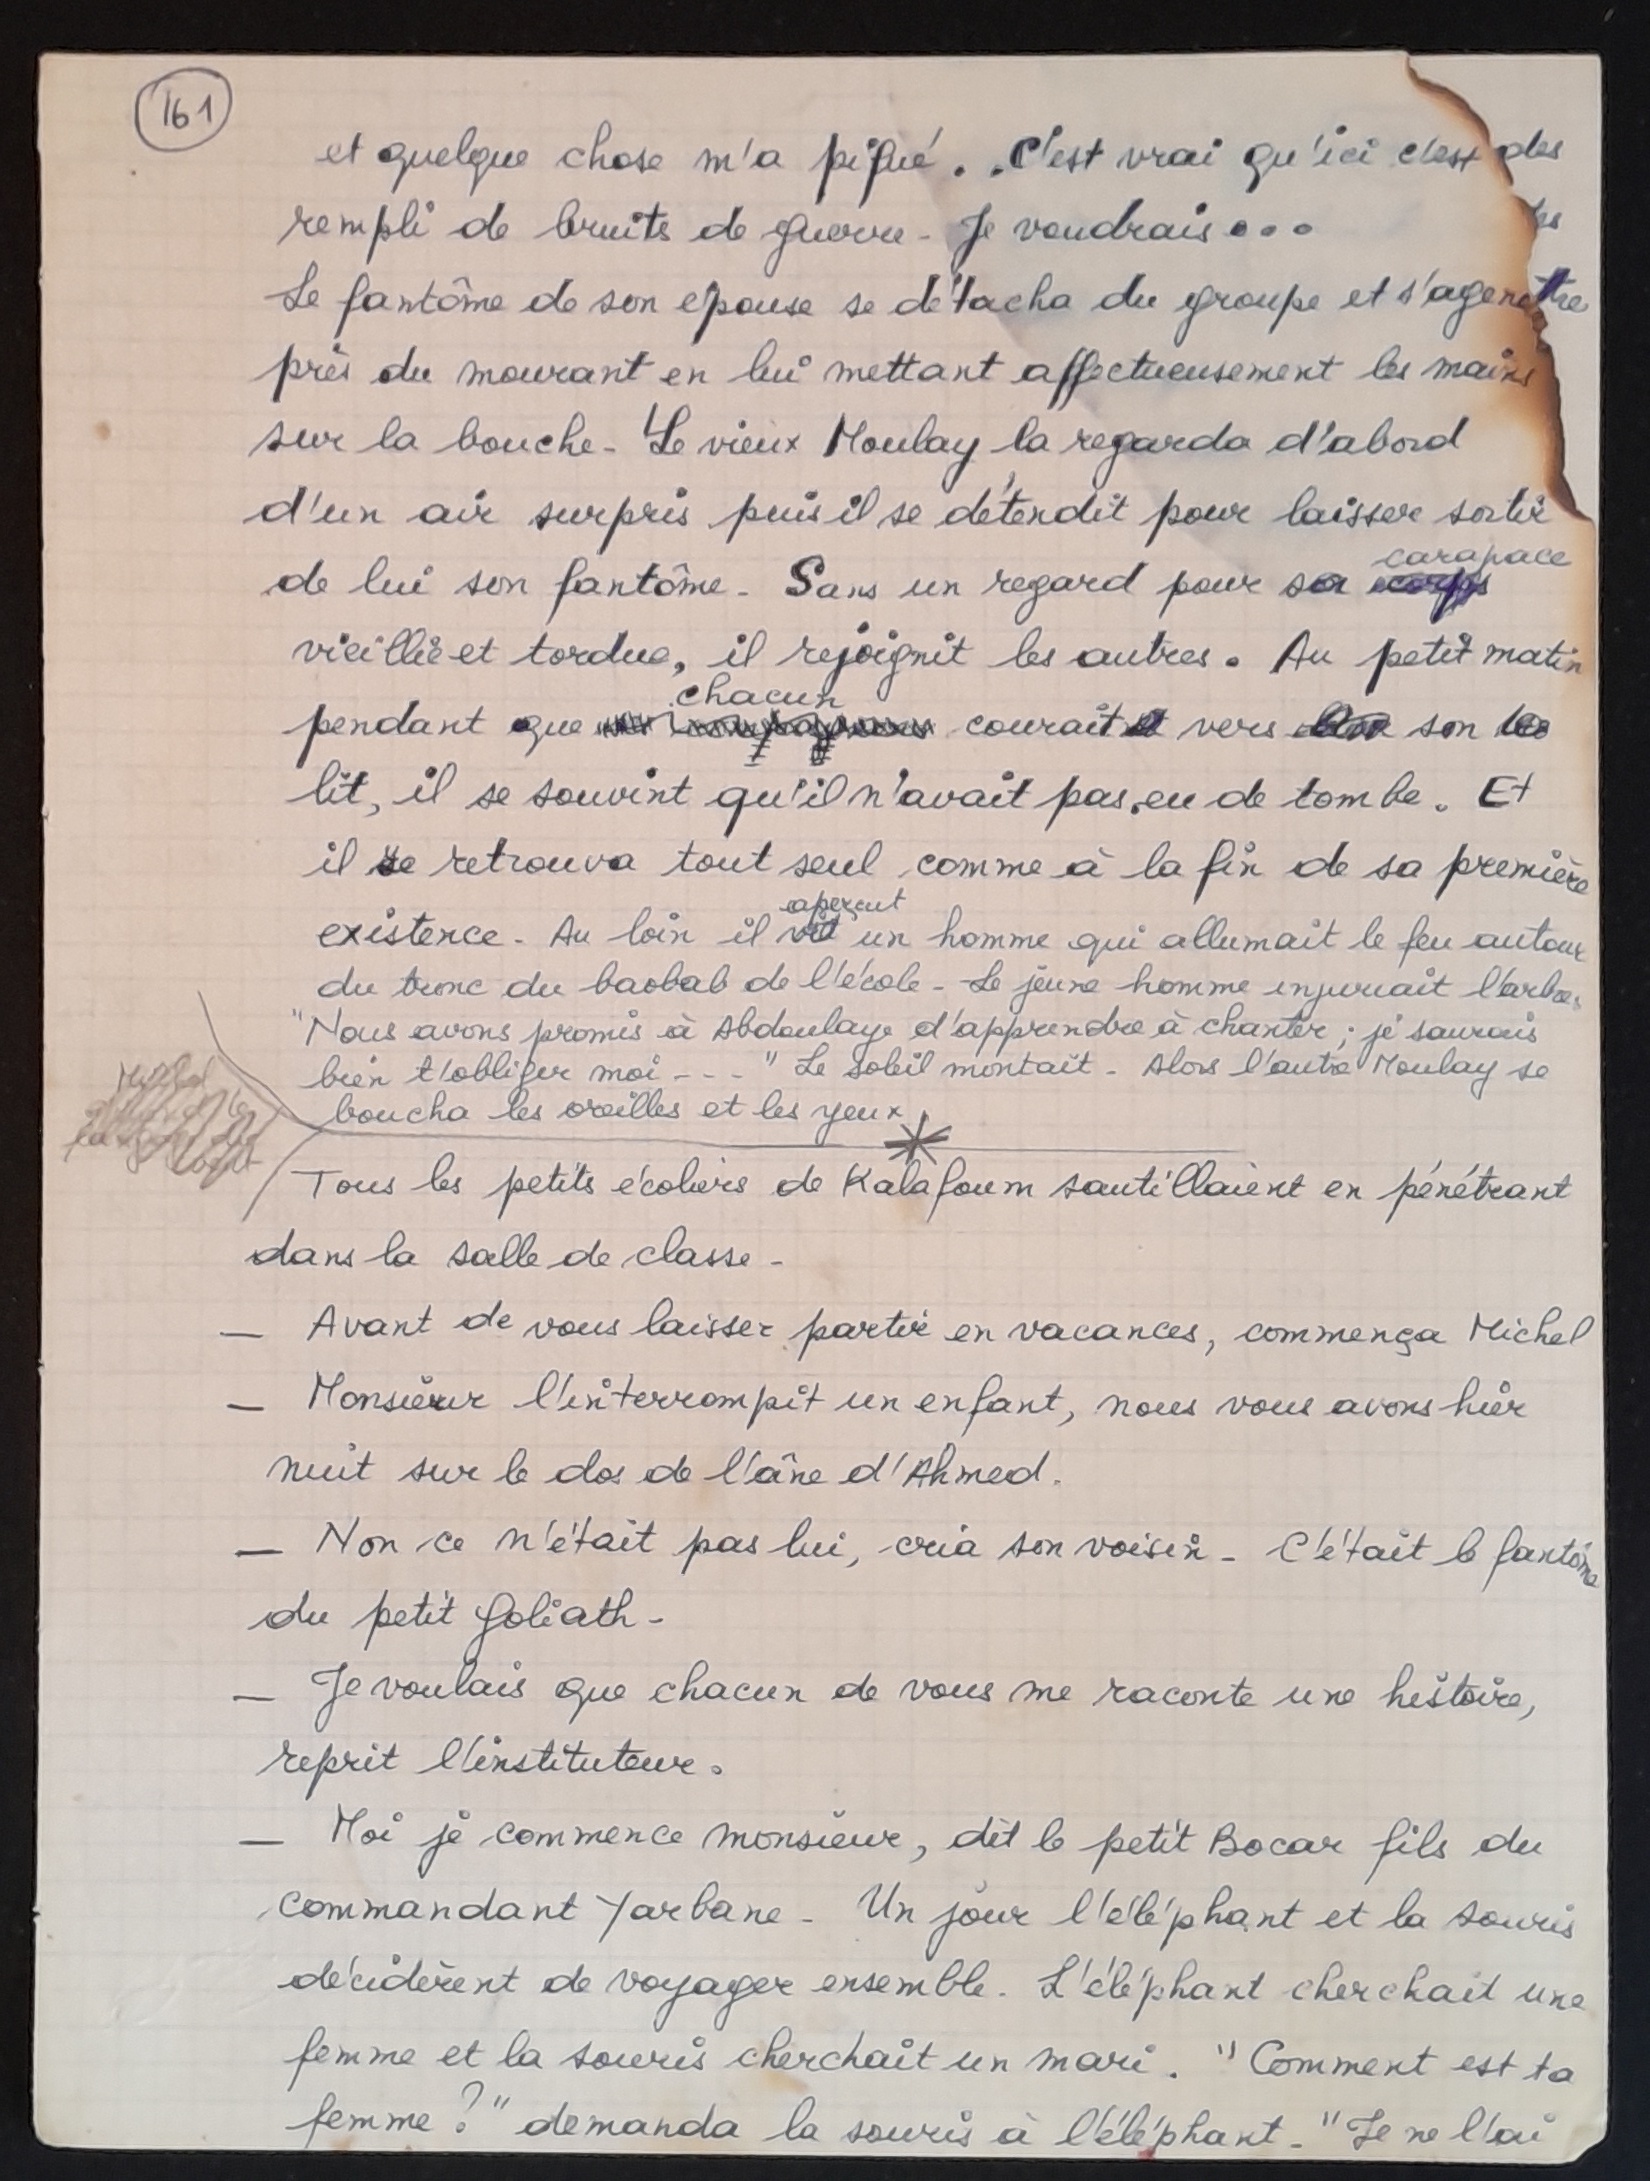 161
et quelque chose m'a piqué. C'est vrai qu'ici c'est des
rempli de bruits de guerre - Je voudrais...
Le fantôme de son épouse se détacha du groupe et s'agen
près du mourant en lui mettant affectueusement les mains
sur la bouche - Le vieux Moulay la regarda d'abord
d'un air surpris puis il se détendit pour laisser sortir
carapace
de lui son fantôme - Sans un regard pour sa corps
vieillie et tordue, il rejoignit les autres. Au petit matin
chacun
pendant que courait vers son
lit, il se souvint qu'il n'avait pas eu de tombe. Et
il se retrouva tout seul comme à la fin de sa première
aperçut
existence - Au loin il vit un homme qui allumait le feu autour
du tronc du baobab de l'école - Le jeune homme injuriait l'arbre.
"Nous avons promis à Abdoulaye d'apprendre à chanter ; je saurais
bien t'obliger moi - - - " Le soleil montait - Alors l'autre Moulay se
boucha les oreilles et les yeux.
Tous les petits écoliers de Kalafoum sautillaient en pénétrant
dans la salle de classe -
— Avant de vous laisser partir en vacances, commença Michel
— Monsieur l'interrompit un enfant, nous vous avons hier
nuit sur le dos de l'âne d'Ahmed.
— Non ce n'était pas lui, cria son voisin - C'était le fantôme
du petit Goliath -
— Je voulais que chacun de vous me raconte une histoire,
reprit l'instituteur.
— Moi je commence monsieur, dit le petit Bocar fils du
commandant Yarbane - Un jour l'éléphant et la souris
décidèrent de voyager ensemble. L'éléphant cherchait une
femme et la souris cherchait un mari. "Comment est ta
femme ?" demanda la souris à l'éléphant - "Je ne l'ai